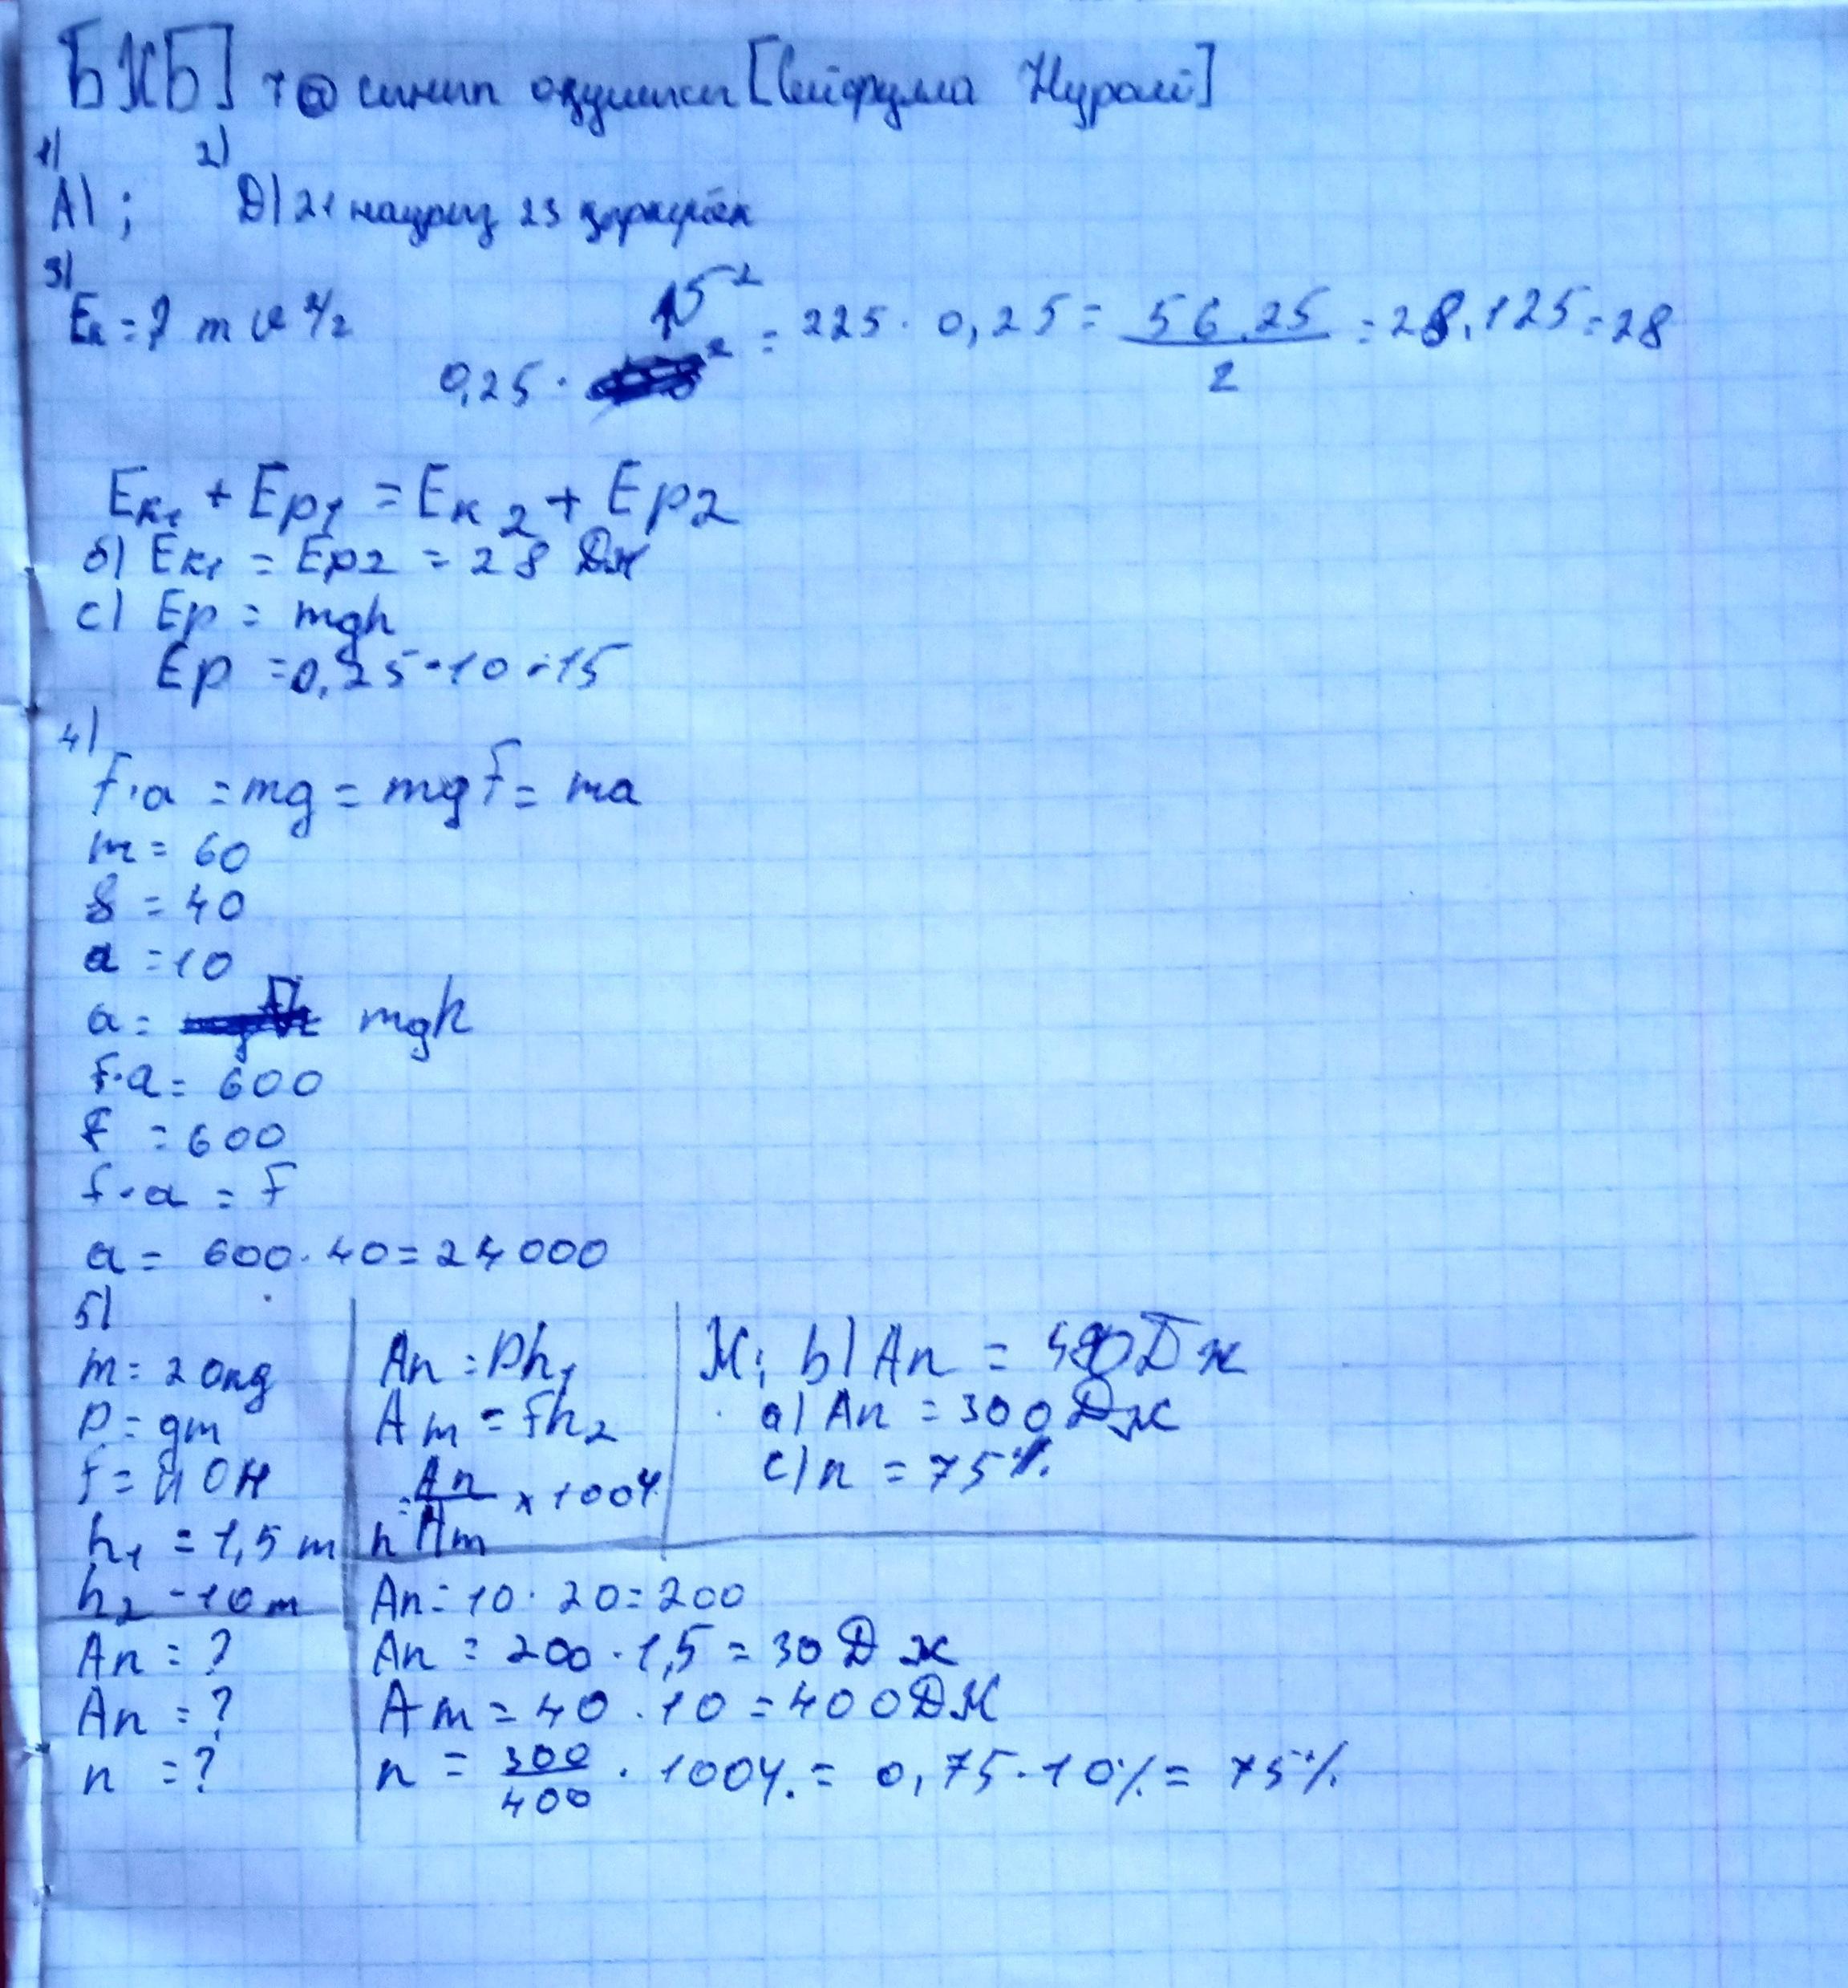 БЖБ] 7 синып оқушысы [Сейфулла Нурали]
1) 2)
А) ; D) 21 наурыз 23 қыркүйек
3)
Eк = ? m v²/2 15²
0,25 · ² = 225 · 0,25 = 56.25/2 = 28.125 = 28
Eк1 + Ep1 = Eк2 + Ep2
б) Eк1 = Ep2 = 28 Дж
c) Ep = mgh
Ep = 0,25 · 10 · 15
4)
F·a = mg = mg F = ma
m = 60
S = 40
a = 10
a = mgh
F·a = 600
F = 600
F·a = F
a = 600 · 40 = 24000
5)
m = 20кg
P = gm
F = 40Н
h1 = 1,5 m
h2 = 10 m
An = ?
An = ?
n = ?
An = Ph1
Am = Fh2
n = An/Am × 100%
Ж; b) An = 400 Дж
a) An = 300 Дж
c) n = 75%
An = 10 · 20 = 200
An = 200 · 1,5 = 30 Дж
Am = 40 · 10 = 400 Дж
n = 300/400 · 100% = 0,75 · 10% = 75%